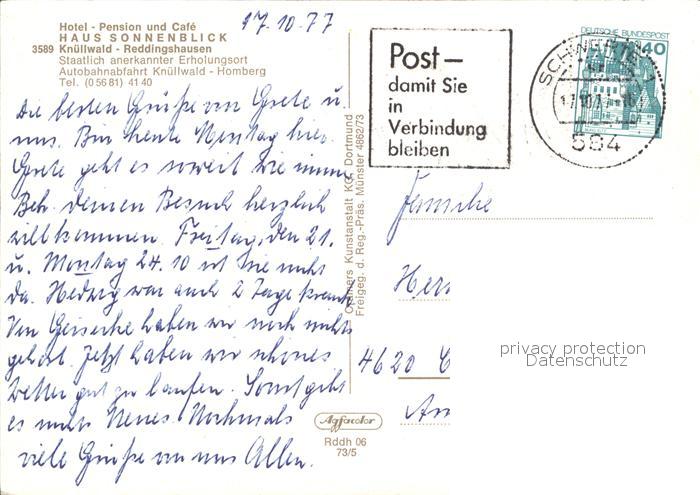 17.10.77
Hotel - Pension und Café
HAUS SONNENBLICK
3589 Knüllwald - Reddingshausen
Staatlich anerkannter Erholungsort
Autobahnabfahrt Knüllwald - Homberg
Tel. (0 56 81) 41 40
Die besten Grüße von Grete u.
uns. Bin heute Montag hier.
Grete geht es soweit wie immer
Betr. deinen Besuch herzlich
willkommen. Freitag, den 21.
u. Montag 24.10 ist sie nicht
da. Hedwig war auch 2 Tage krank
Von Geisecke haben wir noch nichts
gehört. Jetzt haben wir schönes
Wetter gut zu laufen. Sonst gibt
es nichts Neues. Nochmals
viele Grüße von uns Allen.
Cramers Kunstanstalt KG, Dortmund
Freigeg. d. Reg.-Präs. Münster 4862/73
Agfacolor
Rddh 06
73/5
Post –
damit Sie
in
Verbindung
bleiben
SCHWERTE 1
17.10.77
584
DEUTSCHE BUNDESPOST
40
Familie
Herr
4620 C
An
privacy protection
Datenschutz